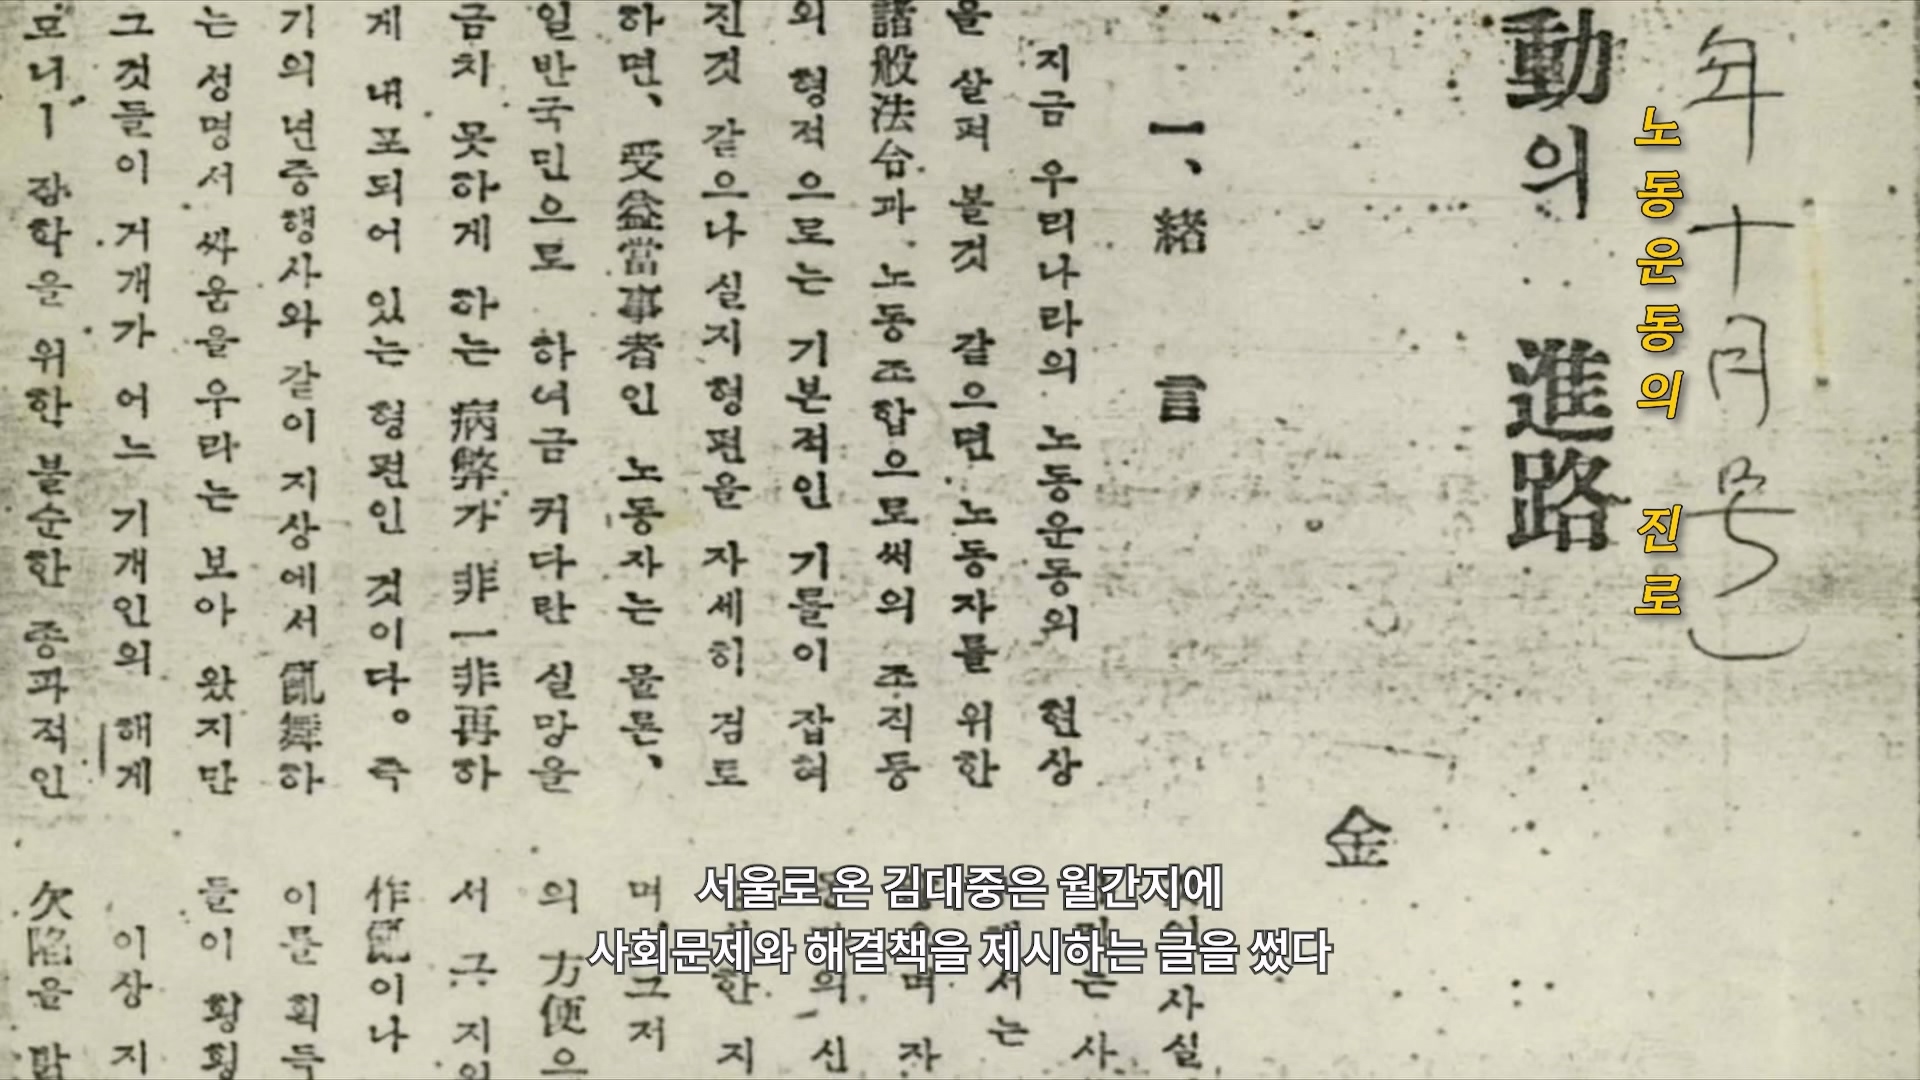 年十月号)
노동운동의 진로
動의 進路
金
一、緖言
지금 우리나라의 노동운동의 현상
을 살펴 볼것 같으면 노동자를 위한
諸般法合과 노동조합으로써의 조직등
의 형적으로는 기본적인 기틀이 잡혀
진것 같으나 실지형편을 자세히 검토
하면、受益當事者인 노동자는 물론、
일반국민으로 하여금 커다란 실망을
금치 못하게 하는 病弊가 非一非再하
게 내포되어 있는 형편인 것이다。즉
기의 년중행사와 같이 지상에서 亂舞하
는 성명서 싸움을 우라는 보아 왔지만
그것들이 거개가 어느 기개인의 해게
모니ㅣ 잡학을 위한 불순한 종파적인
사실
의 方便으
서 그 지
作亂이나
이를 획득
들이 황황
이상 지
欠陷을
서울로 온 김대중은 월간지에
사회문제와 해결책을 제시하는 글을 썼다